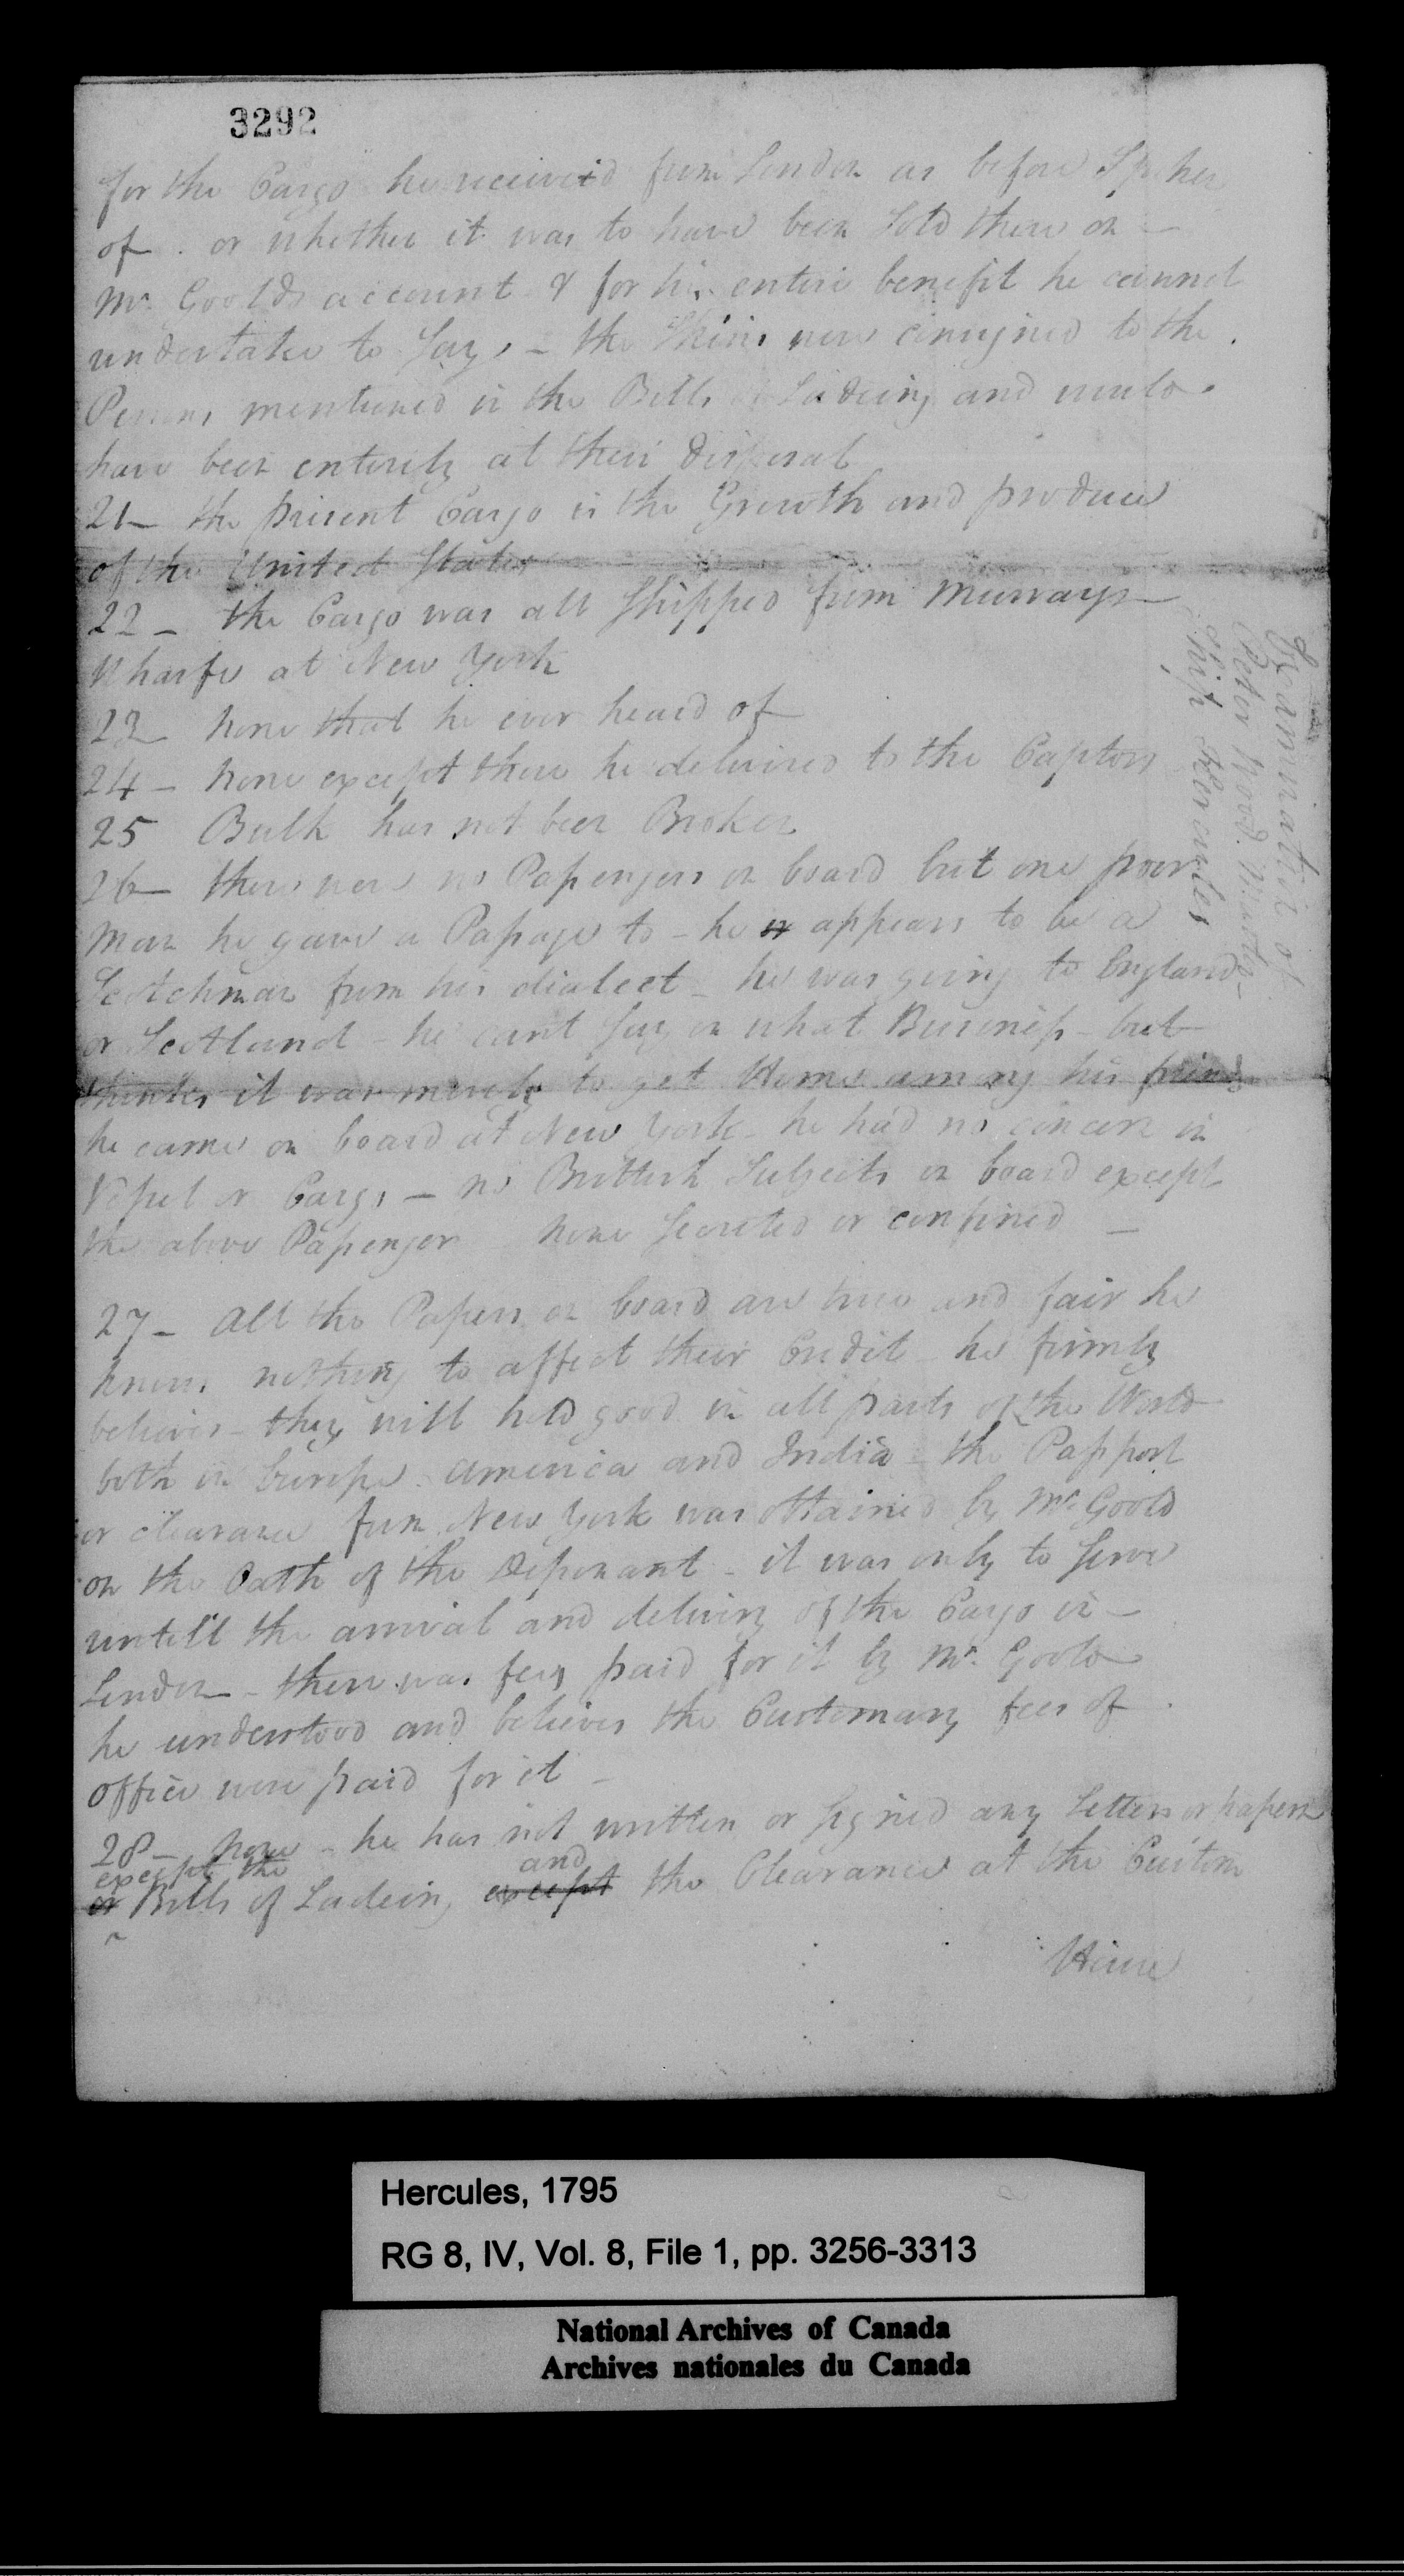 3292
for the Cargo he received from London as before Spoken
of. or whether it was to have been Sold there on —
Mr. Goolds account & for his entire benefit he cannot
undertake to Say, - the Skins were consigned to the
Persons mentioned in the Bills of Ladeing and would
have been entirely at their disposal
21 - the present Cargo is the Growth and produce
of the United States
22 - the Cargo was all Shipped from Murrays —
Wharfe at New York
23 none that he ever heard of
24 - none except those he delivered to the Captors
25 Bulk has not been Broken
26 - there were no Passengers on board but one poor
man he gave a Passage to - he is appears to be a
Scotchman from his dialect - he was going to England
or Scotland - he cant Say on what Business - but
thinks it was merely to get Home among his friends
he came on board at New York - he had no concern in
Vessel or Cargo - no Brittish Subjects on board except
the above Passenger none Secreted or confined —
27 - All the Papers on board are true and fair he
knows nothing to affect their Credit - he firmly
believes - they will hold good in all parts of the World
both in Europe America and India - the Passport
or clearance from New York was obtained by Mr Goold
on the Oath of the Deponant - it was only to Serve
untill the arrival and delivery of the Cargo in —
London - there was fees paid for it by Mr. Goold
he understood and believes the Customary fees of
office were paid for it -
28 - none - he has not written or Signed any Letters or papers
except the and
or Bills of Ladeing except the Clearance at the Custom
House
Examination of
Peter Wood Master
Ship Hercules
Hercules, 1795
RG 8, IV, Vol. 8, File 1, pp. 3256-3313
National Archives of Canada
Archives nationales du Canada